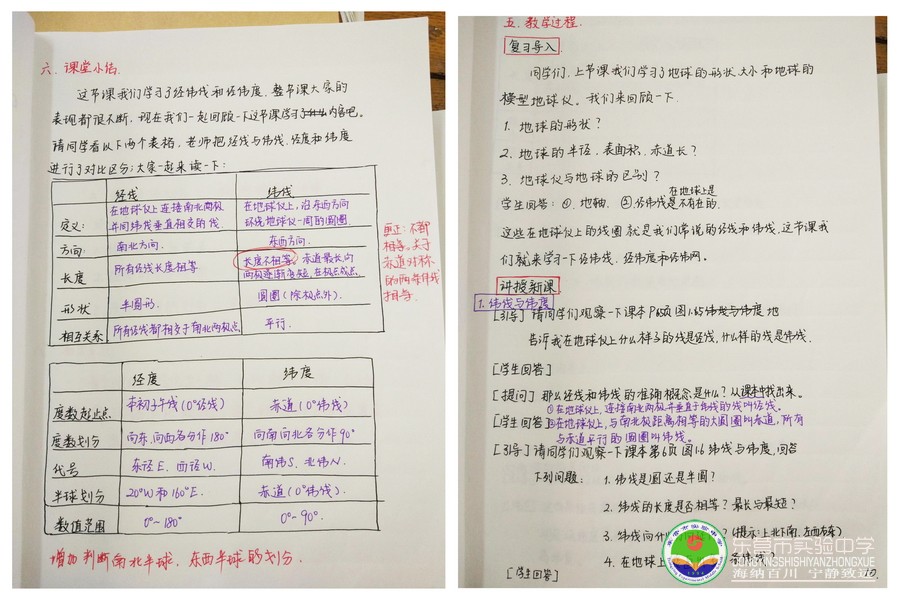 六、课堂小结.
这节课我们学习了经纬线和经纬度.整节课大家的
表现都很不断,现在我们一起回顾一下这节课学习了什么内容吧。
请同学看以下两个表格,老师把经线与纬线,经度和纬度
进行了对比区分;大家一起来读一下:
经线 纬线
定义: 在地球仪上连接南北两极 并同纬线垂直相交的线. 在地球仪上,沿东西方向 环绕地球仪一周的圆圈
方向: 南北方向. 东西方向.
长度 所有经线长度相等 长度不相等,赤道最长,向 两极逐渐变短,在极点成点.
形状 半圆形. 圆圈(除极点外).
相互关系 所有经线都相交于南北两极点. 平行.
更正:不都
相等。关于
赤道对称
的两条纬线
相等.
经度 纬度
度数起止点 本初子午线(0°经线) 赤道(0°纬线)
度数划分 向东、向西各分作180° 向南向北各分作90°
代号 东经E、西经W. 南纬S、北纬N.
半球划分 20°W和160°E. 赤道(0°纬线).
数值范围 0°~180° 0°~90°.
增加判断南北半球、东西半球的划分.
五、教学过程.
复习导入
同学们,上节课我们学习了地球的形状.大小和地球的
模型地球仪。我们来回顾一下.
1. 地球的形状?
2. 地球的半径、表面积、赤道长?
3. 地球仪与地球的区别?
学生回答:①.地轴. ②.经纬线是在地球上是不存在的.
这些在地球仪上的线圈就是我们常说的经线和纬线,这节课我
们就来学习一下经纬线、经纬度和经纬网。
讲授新课
1.纬线与纬度
[引导] 请同学们观察一下课本P65页图1.65纬线与纬度 地
告诉我在地球仪上什么样子的线是经线,什么样的线是纬线.
[学生回答]
[提问] 那么经线和纬线的准确概念是什么?从课本中找出来.
①在地球仪上,连接南北两极并垂直于纬线的线叫经线。
[学生回答]②在地球仪上,与南北极距离相等的大圆圈叫赤道,所有
与赤道平行的圆圈叫纬线。
[引导] 请同学们观察一下课本第6页图1.6纬线与纬度,回答
下列问题: 1. 纬线是圆还是半圆?
2. 纬线的长度是否相等?最长与最短?
3. 纬线向什 (提示:上北下南,左西右东)
4. 在地球上
[学生回答]
10
东营市实验中学
DONGYINGSHISHIYANZHONGXUE
海纳百川 宁静致远